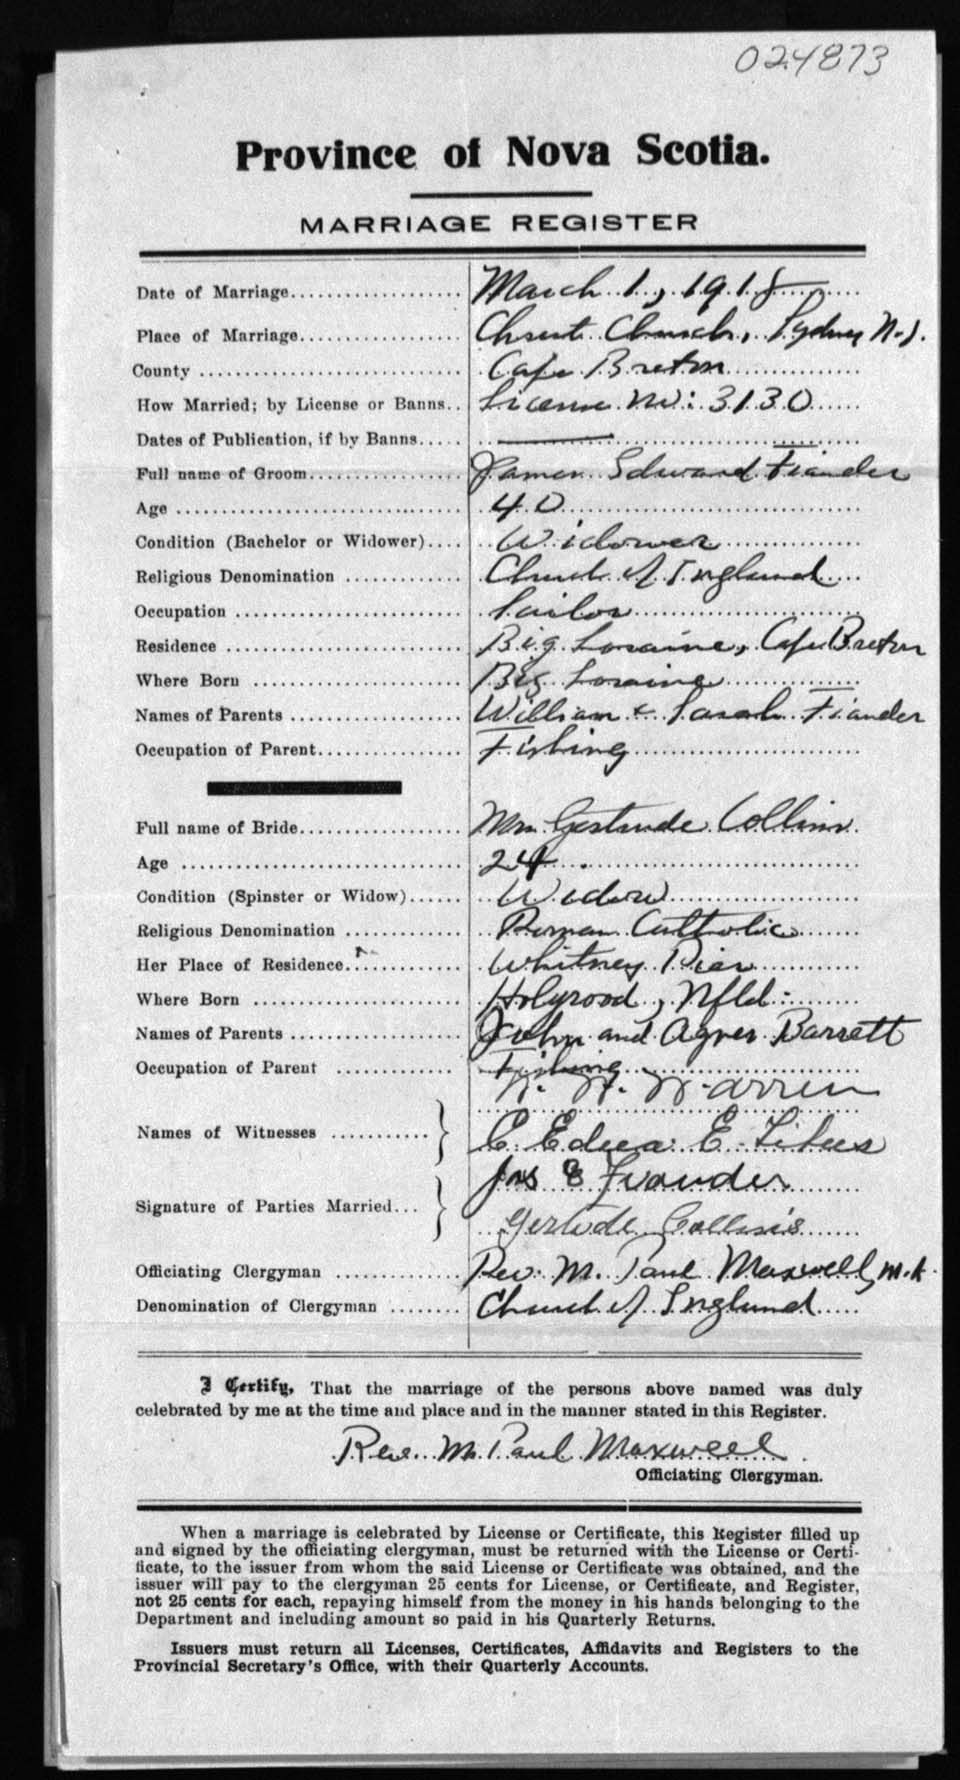 024873
Province of Nova Scotia.
MARRIAGE REGISTER
Date of Marriage.................... March 1, 1918
Place of Marriage.................. Christ Church, Sydney N.S.
County ............................ Cape Breton
How Married; by License or Banns.. License No: 3130
Dates of Publication, if by Banns.....
Full name of Groom................ James Edward Fiander
Age ............................... 40
Condition (Bachelor or Widower).... Widower
Religious Denomination ............ Church of England
Occupation ........................ Sailor
Residence ......................... Big Loraine, Cape Breton
Where Born ...................... Big Loraine
Names of Parents .................. William & Sarah Fiander
Occupation of Parent............... Fishing
Full name of Bride................. Mrs. Gertrude Collins
Age ............................... 24
Condition (Spinster or Widow)...... Widow
Religious Denomination ............ Roman Catholic
Her Place of Residence............. Whitney Pier
Where Born ...................... Holyrood, Nfld.
Names of Parents .................. John and Agnes Barrett
Occupation of Parent ............. Fishing
W. Warren
Names of Witnesses ........... E.
Jas E Fiander
Signature of Parties Married...
Gertude Collins
Officiating Clergyman ............. Rev. M. Paul Maxwell, M.A.
Denomination of Clergyman ........ Church of England
I Certify, That the marriage of the persons above named was duly
celebrated by me at the time and place and in the manner stated in this Register.
Rev. M. Paul Maxwell
Officiating Clergyman.
When a marriage is celebrated by License or Certificate, this Register filled up
and signed by the officiating clergyman, must be returned with the License or Certi-
ficate, to the issuer from whom the said License or Certificate was obtained, and the
issuer will pay to the clergyman 25 cents for License, or Certificate, and Register,
not 25 cents for each, repaying himself from the money in his hands belonging to the
Department and including amount so paid in his Quarterly Returns.
Issuers must return all Licenses, Certificates, Affidavits and Registers to the
Provincial Secretary's Office, with their Quarterly Accounts.